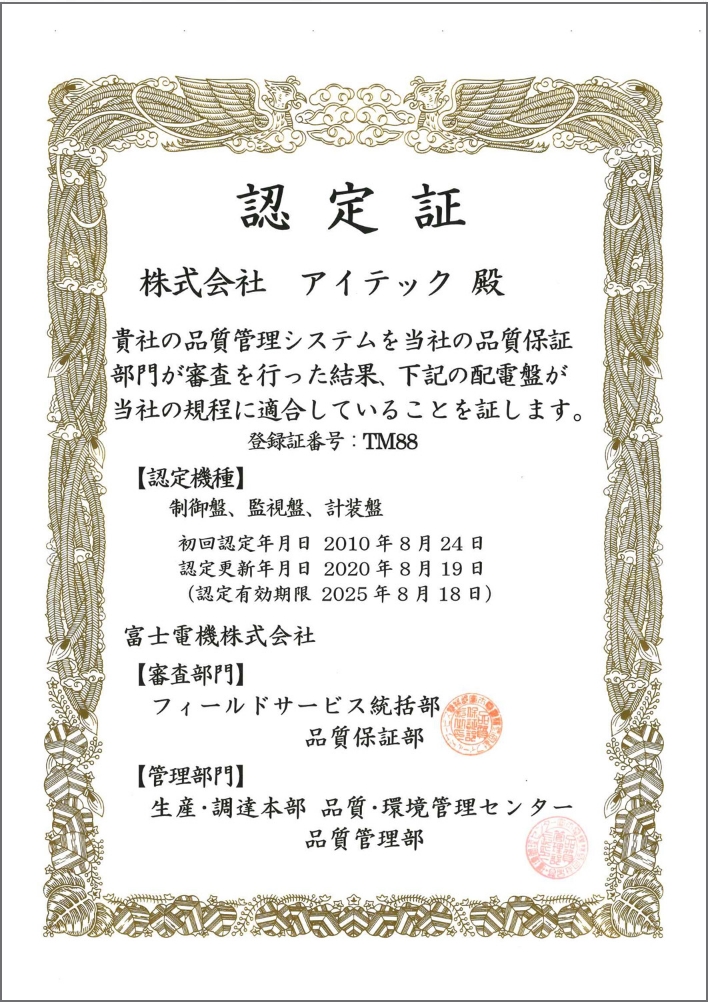 認定証
株式会社　アイテック 殿
貴社の品質管理システムを当社の品質保証
部門が審査を行った結果、下記の配電盤が
当社の規程に適合していることを証します。
登録証番号：TM88
【認定機種】
制御盤、監視盤、計装盤
初回認定年月日 2010 年 8 月 24 日
認定更新年月日 2020 年 8 月 19 日
（認定有効期限 2025 年 8 月 18 日）
富士電機株式会社
【審査部門】
フィールドサービス統括部
品質保証部
【管理部門】
生産・調達本部 品質・環境管理センター
品質管理部